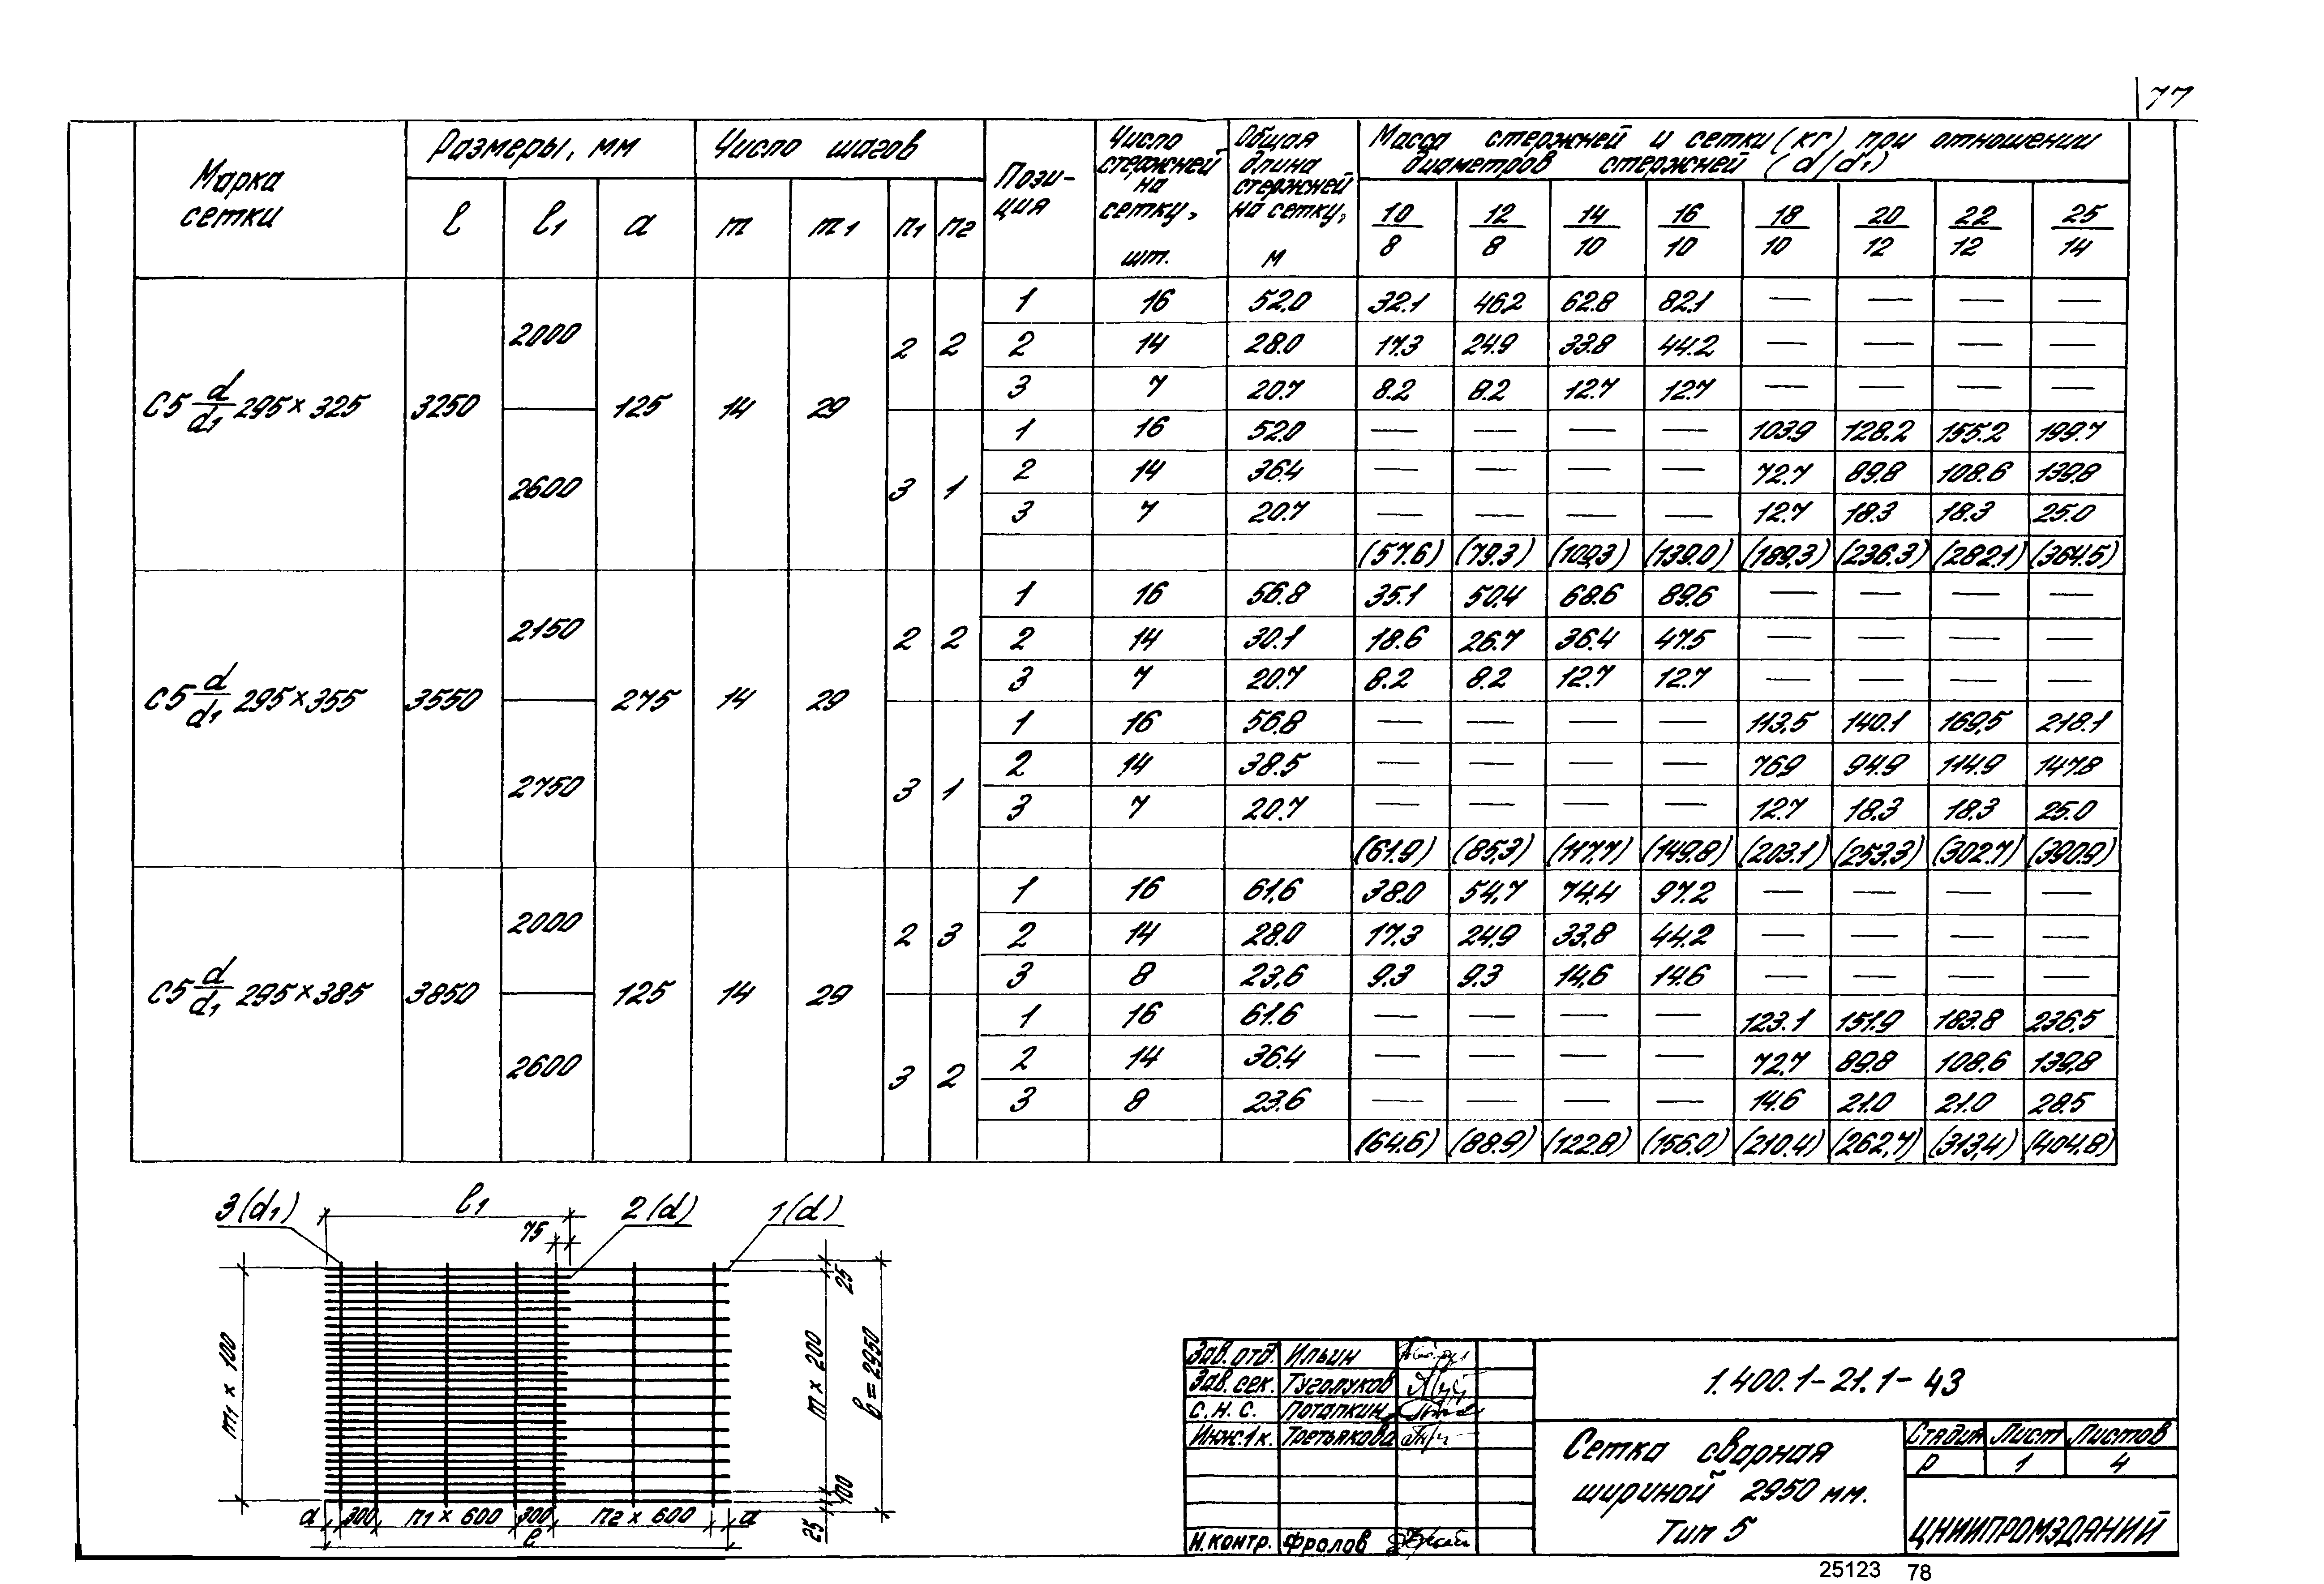 77
Марка сетки | Размеры, мм | Число шагов | Пози-ция | Число стержней на сетку, шт. | Общая длина стержней на сетку, м | Масса стержней и сетки (кг) при отношении диаметров стержней (d/d1)
l | l1 | a | m | m1 | n1 | n2 | 10/8 | 12/8 | 14/10 | 16/10 | 18/10 | 20/12 | 22/12 | 25/14
С5 d/d1 295×325 | 3250 | 2000 | 125 | 14 | 29 | 2 | 2
1 | 16 | 52.0 | 32.1 | 46.2 | 62.8 | 82.1 | — | — | — | —
2 | 14 | 28.0 | 17.3 | 24.9 | 33.8 | 44.2 | — | — | — | —
3 | 7 | 20.7 | 8.2 | 8.2 | 12.7 | 12.7 | — | — | — | —
2600 | 3 | 1
1 | 16 | 52.0 | — | — | — | — | 103.9 | 128.2 | 155.2 | 199.7
2 | 14 | 36.4 | — | — | — | — | 72.7 | 89.8 | 108.6 | 139.8
3 | 7 | 20.7 | — | — | — | — | 12.7 | 18.3 | 18.3 | 25.0
(57.6) | (79.3) | (109.3) | (139.0) | (189.3) | (236.3) | (282.1) | (364.5)
С5 d/d1 295×355 | 3550 | 2150 | 275 | 14 | 29 | 2 | 2
1 | 16 | 56.8 | 35.1 | 50.4 | 68.6 | 89.6 | — | — | — | —
2 | 14 | 30.1 | 18.6 | 26.7 | 36.4 | 47.5 | — | — | — | —
3 | 7 | 20.7 | 8.2 | 8.2 | 12.7 | 12.7 | — | — | — | —
2750 | 3 | 1
1 | 16 | 56.8 | — | — | — | — | 113,5 | 140.1 | 169,5 | 218.1
2 | 14 | 38.5 | — | — | — | — | 76.9 | 94.9 | 114.9 | 147.8
3 | 7 | 20.7 | — | — | — | — | 12.7 | 18.3 | 18.3 | 25.0
(61.9) | (85,3) | (117.7) | (149.8) | (203.1) | (253,3) | (302.7) | (390.9)
С5 d/d1 295×385 | 3850 | 2000 | 125 | 14 | 29 | 2 | 3
1 | 16 | 61,6 | 38.0 | 54,7 | 74,4 | 97.2 | — | — | — | —
2 | 14 | 28.0 | 17.3 | 24,9 | 33,8 | 44.2 | — | — | — | —
3 | 8 | 23,6 | 9.3 | 9.3 | 14,6 | 14.6 | — | — | — | —
2600 | 3 | 2
1 | 16 | 61.6 | — | — | — | — | 123.1 | 151.9 | 183.8 | 236,5
2 | 14 | 36.4 | — | — | — | — | 72.7 | 89.8 | 108.6 | 139,8
3 | 8 | 23.6 | — | — | — | — | 14.6 | 21.0 | 21.0 | 28.5
(64.6) | (88.9) | (122.8) | (156.0) | (210.4) | (262,7) | (313,4) | (404,8)
3(d1) l1 2(d) 1(d)
75
m1 × 100
25
m × 200
b = 2950
100
25
a 300 n1 × 600 300 n2 × 600 a
l
Зав. отд. Ильин
Зав. сек. Туголуков
С. Н. С. Потапкин
Инж. 1 к. Третьякова
Н. контр. Фролов
1.400.1-21.1-43
Сетка сварная
шириной 2950 мм.
Тип 5
Стадия Лист Листов
Р 1 4
ЦНИИПРОМЗДАНИЙ
25123 78